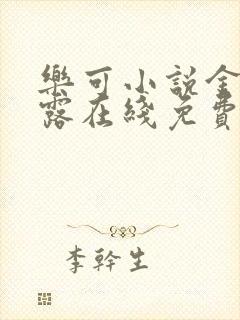 樂可小說金
露在綫免費
李幹生